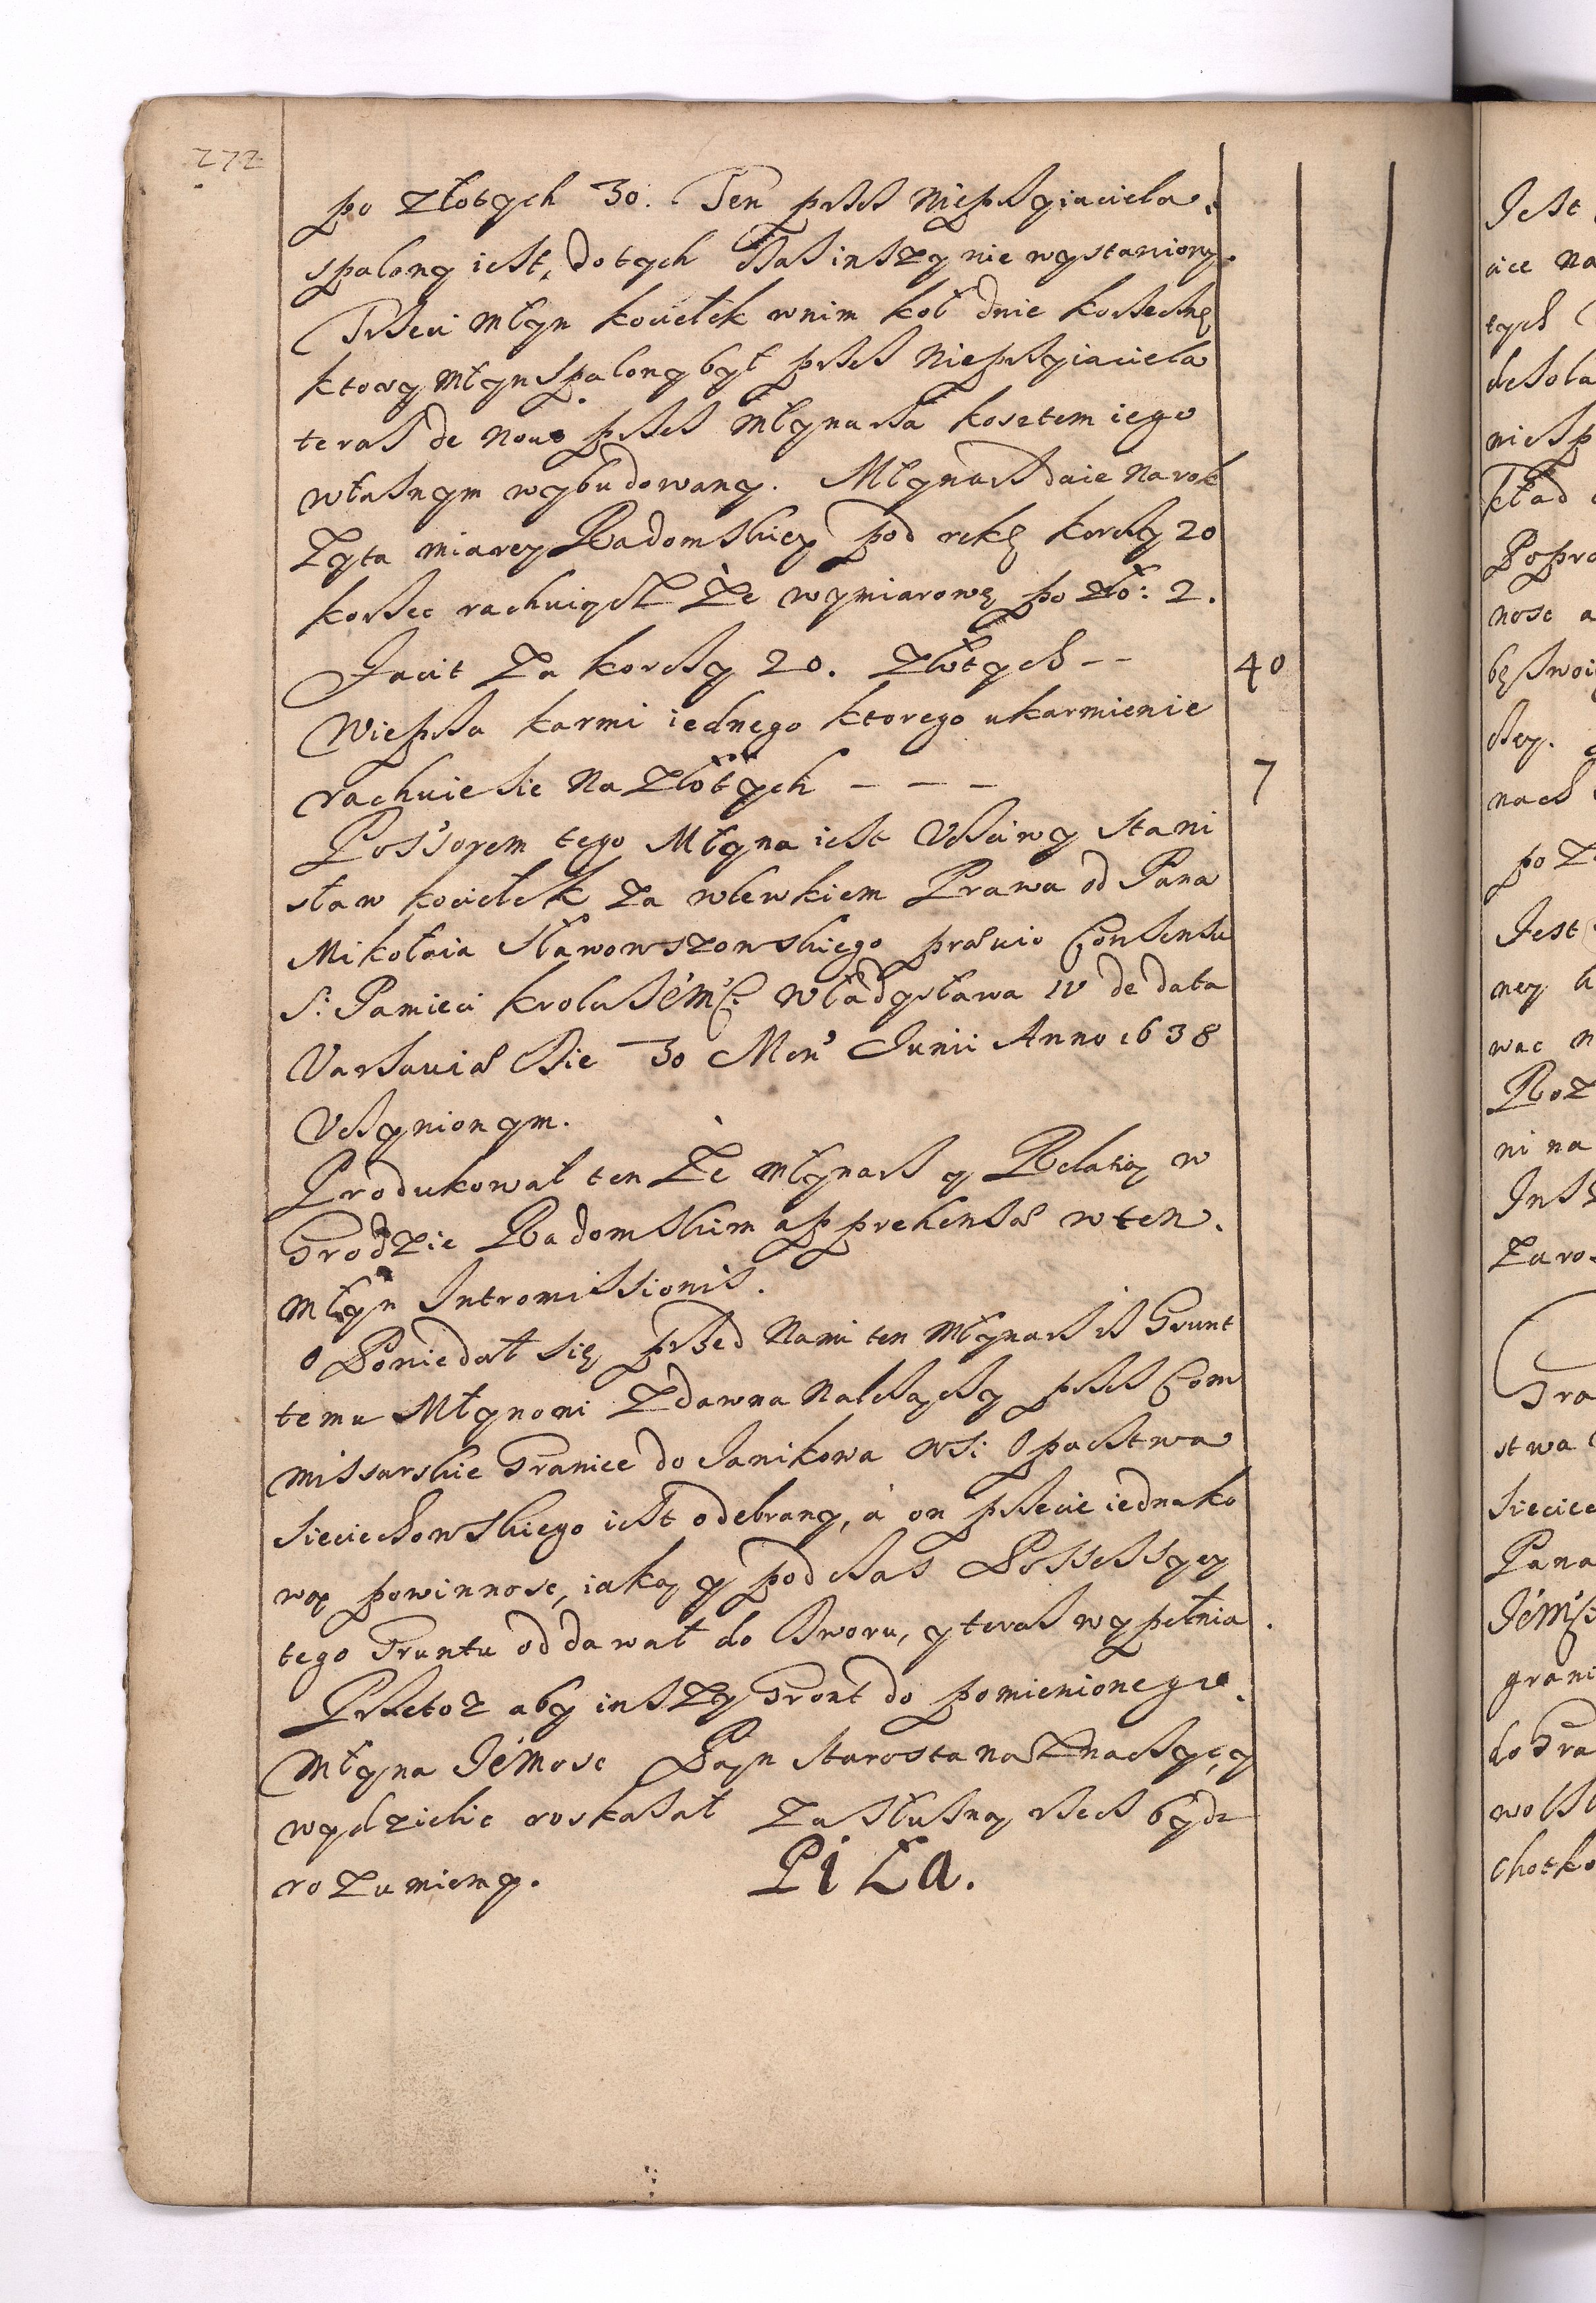 272
po złotych 30. Ten przes niepryiaciela
spalony iest, dotych czas inszy nie wystawiony.
Trzeci młyn kociełek w nim koł dwie korzeczne
ktory młyn spalony był przes niepryiaciela
teras de nouo przes młynarza kosztem iego
własnym wybudowany. Młynarz daie na rok
Zyta miarey Radomskiey pod rekę korcy 20
korzec rachuiącz że wymiarowę po zło: 2.
Facit za korcy 20. złotych -- 40
Wieprza karmi iednego ktorego ukarmienie
rachuie sie na złotych - - - 7
Possorem tego Młyna iest Vcciwy Stani
sław kociełek za wlewkiem Prawa od Pana
Mikołaia Sławowszowskiego prævio Consensu
S: Pamieci krola JémC: Władysława IV de data
Varsaviæ Die 30 Men' Junii Anno 1638
Vczynionym.
Produkował ten że młynarz y Relatią w
Grodzie Radomskim apprehensæ w ten
młyn Intromissionis.
Powiedał się przed nami ten młynarz iż Grunt
temu Młynowi zdawna należący przes Com
missarskie Granice do Janikowa wsi Opactwa
Sieciechowskiego iest odebrany, á on przecie iednako
wą powinnosc, iaką y pod czas Possessyey
tego Gruntu oddawał do Dworu, y teras wypełnia.
Przetoz aby inszy Gront do pomienionego
Młyna Jémosc Pan Starosta naznaczyc, y
wydzielic roskazał za słuszną rzecz bydz
rozumiemy. Piła.
Jest
nosc a
nach
po z
Jest
wac n
ni na
Gra
stwa
Pana
grani
do Gra